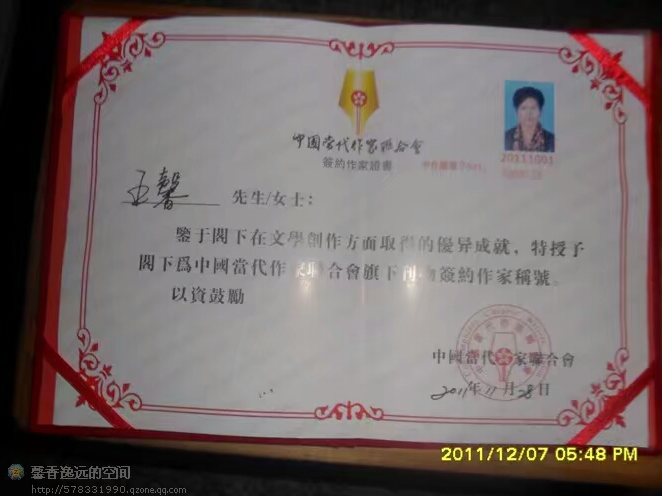 中國當代作家聯合會
簽約作家證書
20111001
王馨 先生/女士:
鑒于閣下在文學創作方面取得的優异成就,特授予
閣下爲中國當代作家聯合會旗下刊物簽約作家稱號。
以資鼓勵
中國當代作家聯合會
2011年11月28日
2011/12/07 05:48 PM
馨香逸远的空间
http://578331990.qzone.qq.com